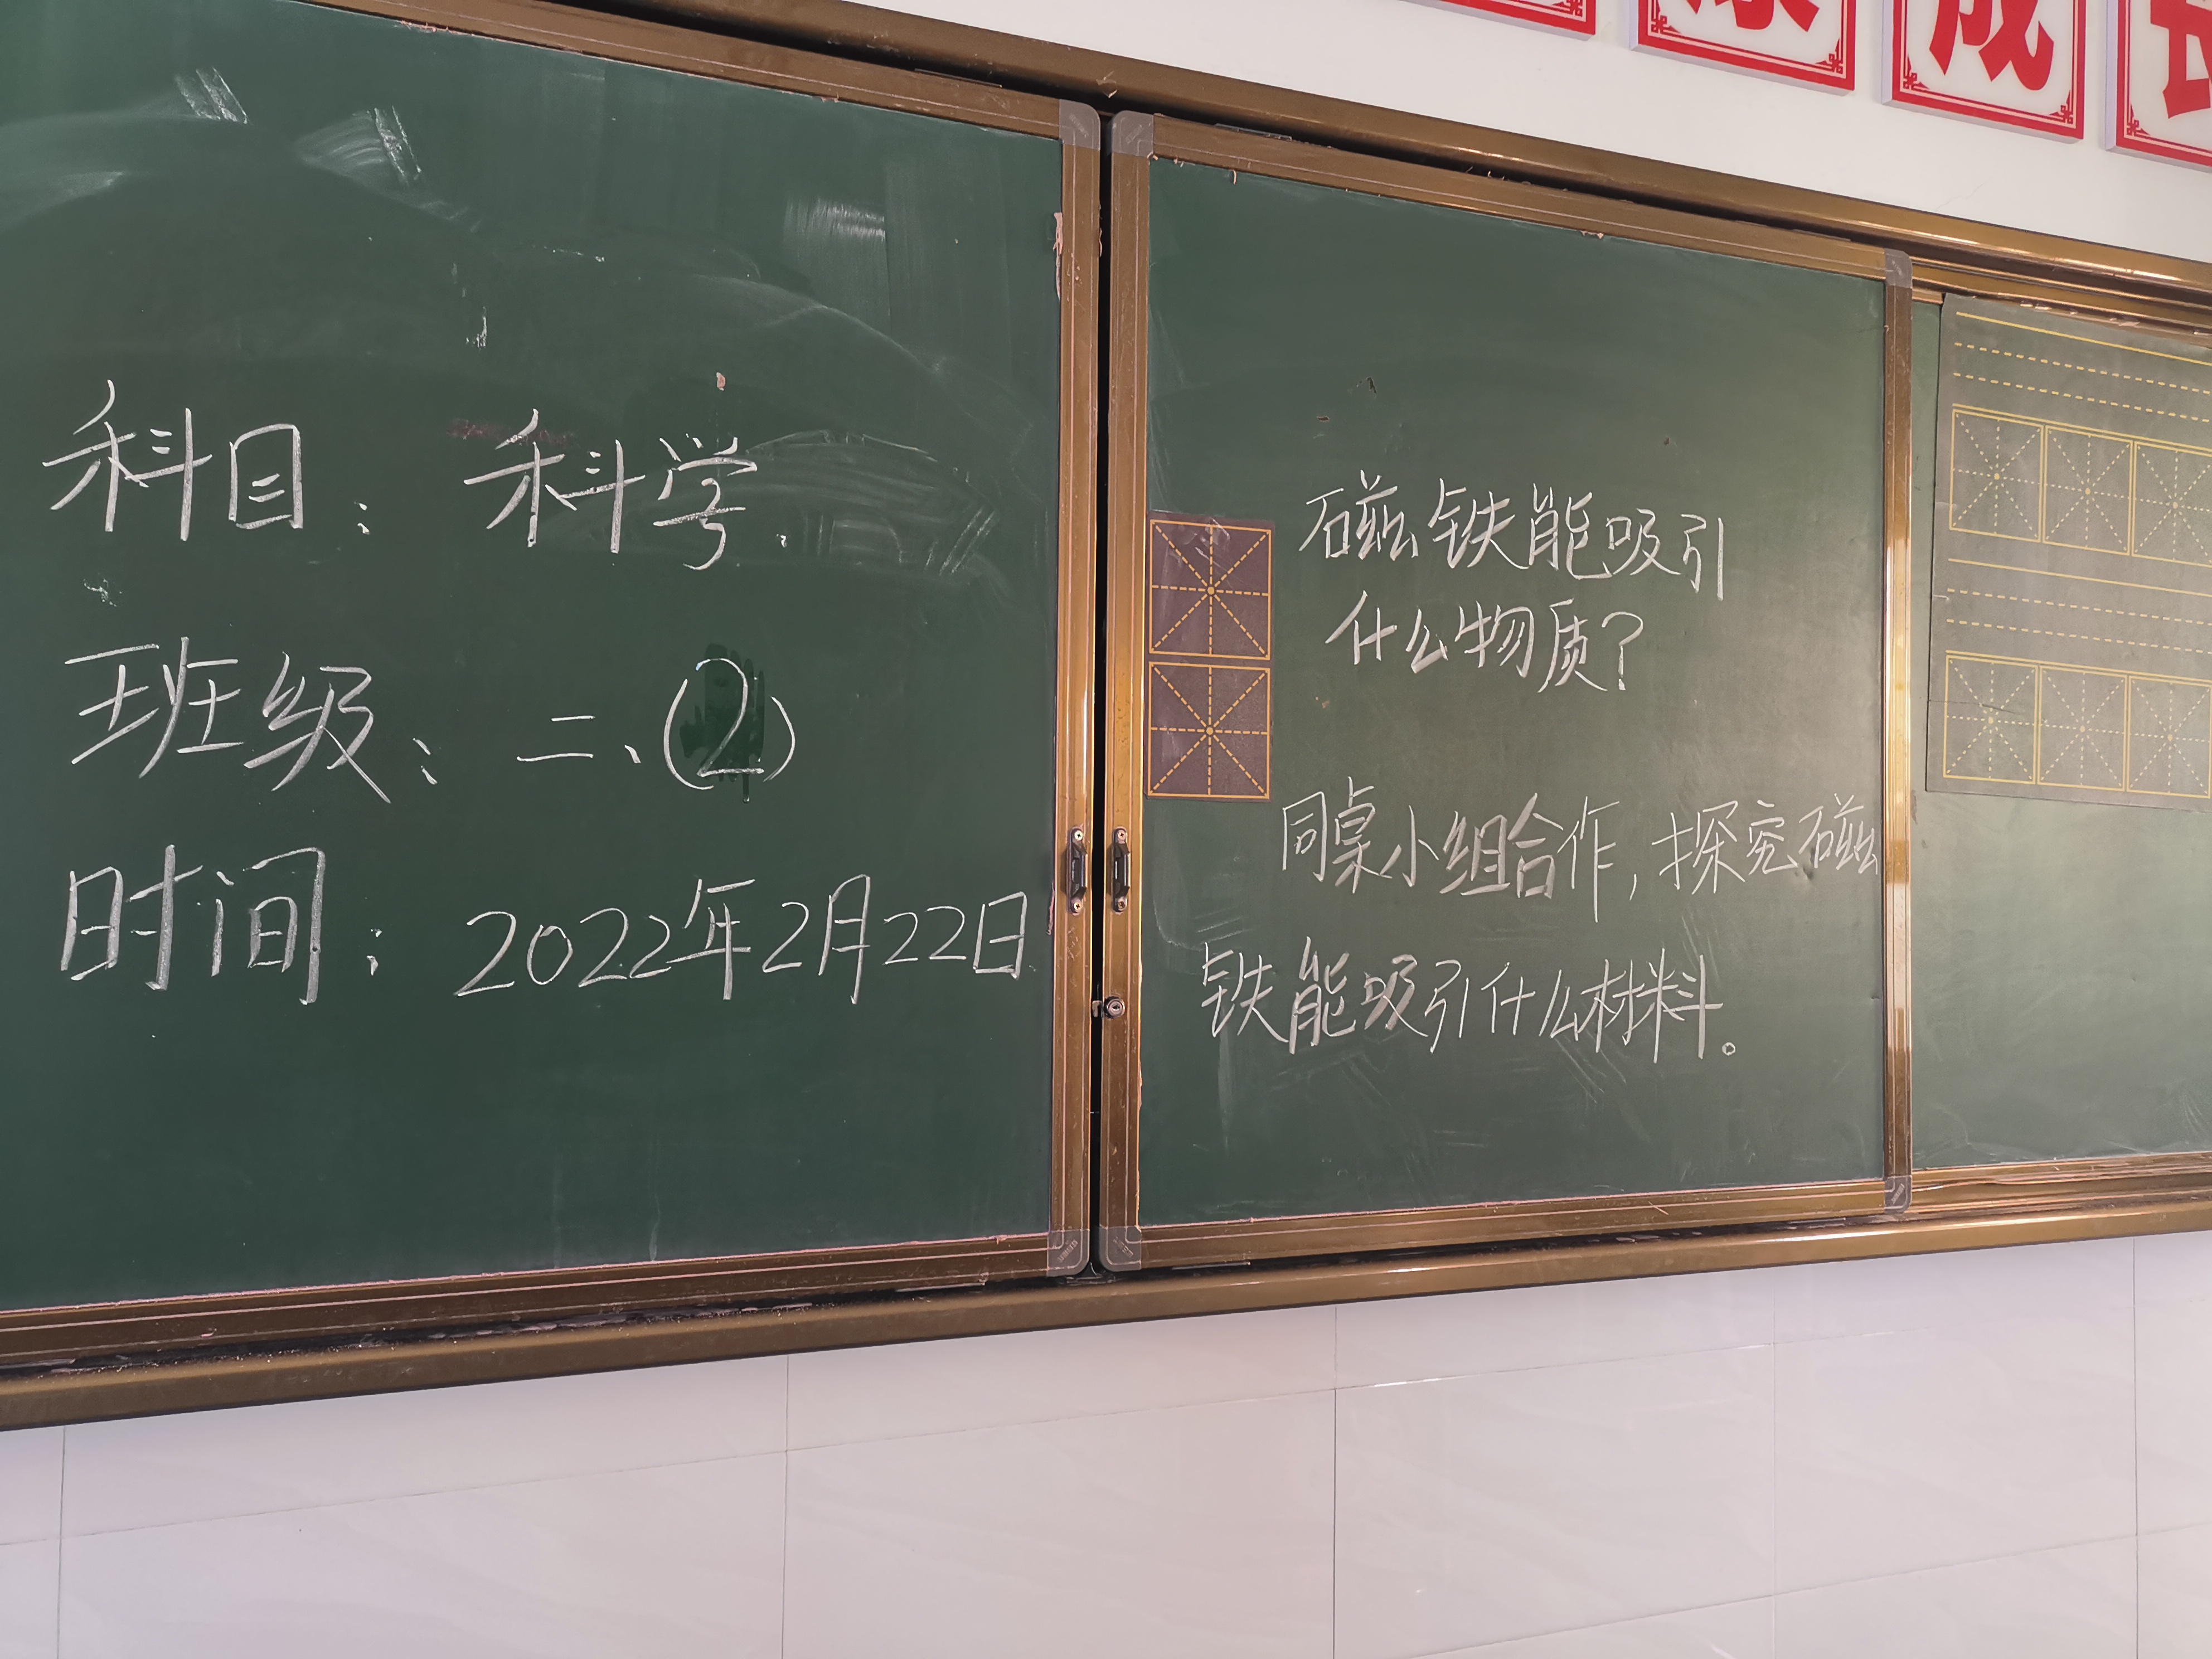 康成长
科目：科学.
班级：二、(2)
时间：2022年2月22日
磁铁能吸引
什么物质？
同桌小组合作，探究磁
铁能吸引什么材料。